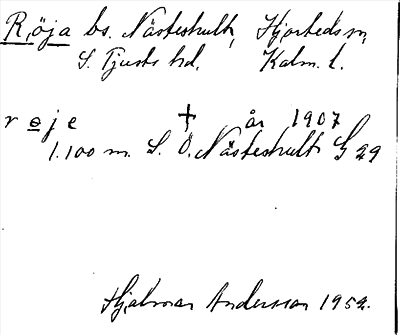 Röja bs. Nästeshult, Hjorteds sn,
S. Tjusts hd. Kalm. l.
röje † år 1907
1.100 m. S. Ö. Nästeshult G 29
Hjalmar Andersson 1952.